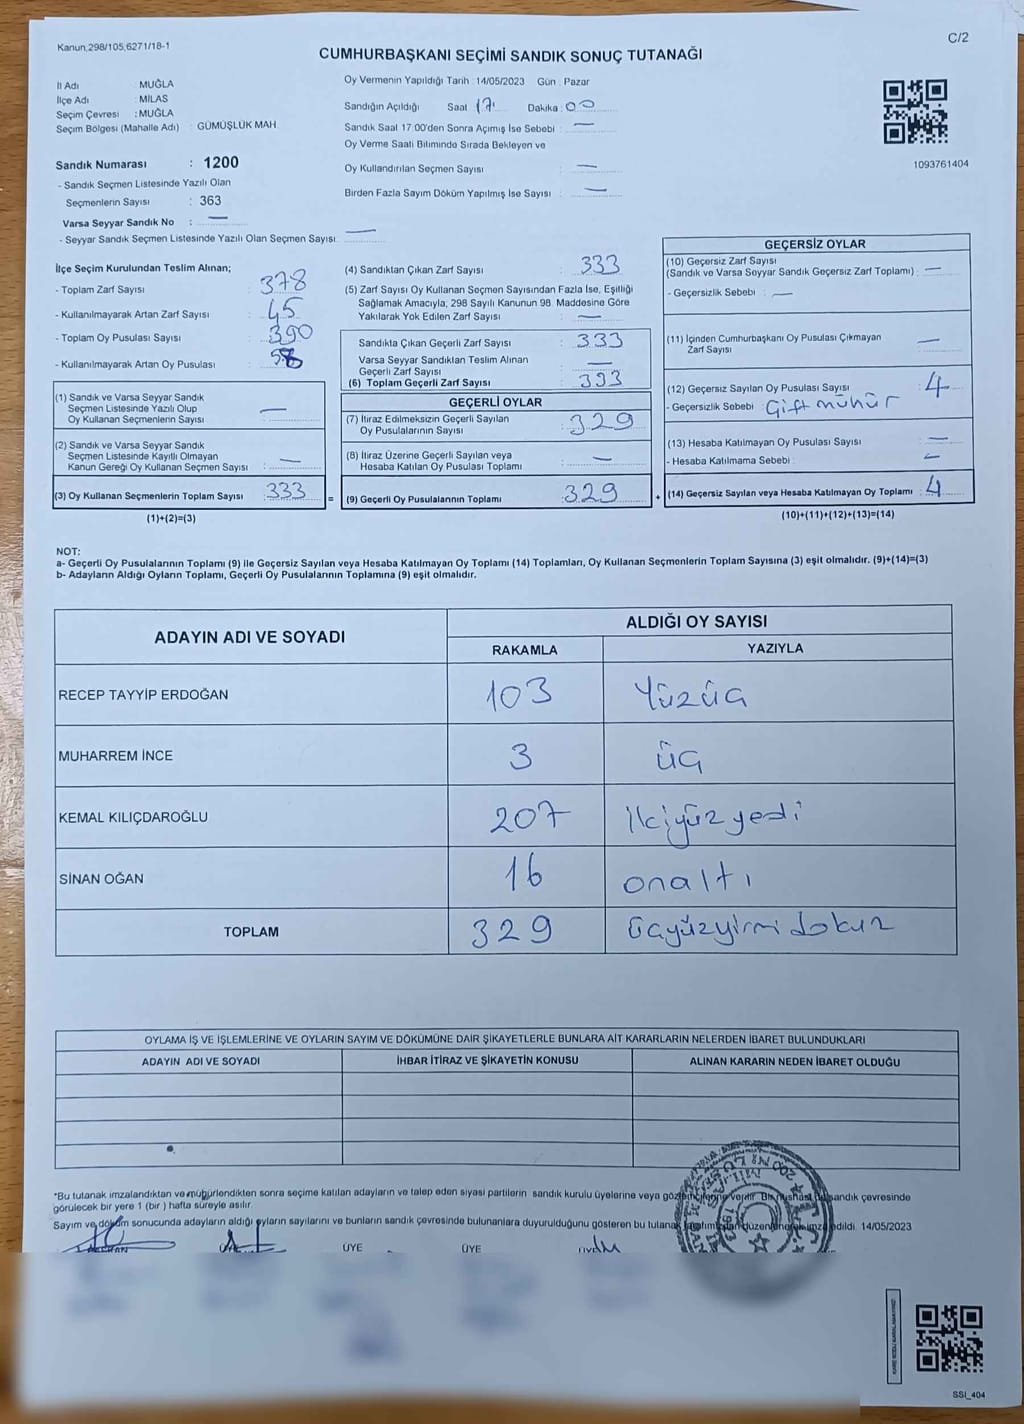 Kanun,298/105,6271/18-1
C/2
CUMHURBAŞKANI SEÇİMİ SANDIK SONUÇ TUTANAĞI
İl Adı : MUĞLA
İlçe Adı : MİLAS
Seçim Çevresi : MUĞLA
Seçim Bölgesi (Mahalle Adı) : GÜMÜŞLÜK MAH
Sandık Numarası : 1200
- Sandık Seçmen Listesinde Yazılı Olan
Seçmenlerin Sayısı : 363
Varsa Seyyar Sandık No : —
- Seyyar Sandık Seçmen Listesinde Yazılı Olan Seçmen Sayısı : —
Oy Vermenin Yapıldığı Tarih : 14/05/2023 Gün : Pazar
Sandığın Açıldığı Saat 17 Dakika : 00
Sandık Saat 17.00'den Sonra Açımış İse Sebebi : —
Oy Verme Saati Bitiminde Sırada Bekleyen ve
Oy Kullandırılan Seçmen Sayısı : —
Birden Fazla Sayım Döküm Yapılmış İse Sayısı : —
1093761404
İlçe Seçim Kurulundan Teslim Alınan;
- Toplam Zarf Sayısı : 378
- Kullanılmayarak Artan Zarf Sayısı : 45
- Toplam Oy Pusulası Sayısı : 390
- Kullanılmayarak Artan Oy Pusulası :
(1) Sandık ve Varsa Seyyar Sandık
Seçmen Listesinde Yazılı Olup
Oy Kullanan Seçmenlerin Sayısı : —
(2) Sandık ve Varsa Seyyar Sandık
Seçmen Listesinde Kayıtlı Olmayan
Kanun Gereği Oy Kullanan Seçmen Sayısı : —
(3) Oy Kullanan Seçmenlerin Toplam Sayısı : 333
(1)+(2)=(3)
(4) Sandıktan Çıkan Zarf Sayısı : 333
(5) Zarf Sayısı Oy Kullanan Seçmen Sayısından Fazla İse, Eşitliği
Sağlamak Amacıyla, 298 Sayılı Kanunun 98. Maddesine Göre
Yakılarak Yok Edilen Zarf Sayısı : —
Sandıkta Çıkan Geçerli Zarf Sayısı : 333
Varsa Seyyar Sandıktan Teslim Alınan
Geçerli Zarf Sayısı : —
(6) Toplam Geçerli Zarf Sayısı : 333
GEÇERLİ OYLAR
(7) İtiraz Edilmeksizin Geçerli Sayılan
Oy Pusulalarının Sayısı : 329
(8) İtiraz Üzerine Geçerli Sayılan veya
Hesaba Katılan Oy Pusulası Toplamı : —
= (9) Geçerli Oy Pusulalarının Toplamı : 329 +
GEÇERSİZ OYLAR
(10) Geçersiz Zarf Sayısı
(Sandık ve Varsa Seyyar Sandık Geçersiz Zarf Toplamı) : —
- Geçersizlik Sebebi : —
(11) İçinden Cumhurbaşkanı Oy Pusulası Çıkmayan
Zarf Sayısı : —
(12) Geçersiz Sayılan Oy Pusulası Sayısı : 4
- Geçersizlik Sebebi : Çift mühür
(13) Hesaba Katılmayan Oy Pusulası Sayısı : —
- Hesaba Katılmama Sebebi : —
(14) Geçersiz Sayılan veya Hesaba Katılmayan Oy Toplamı : 4
(10)+(11)+(12)+(13)=(14)
NOT:
a- Geçerli Oy Pusulalarının Toplamı (9) ile Geçersiz Sayılan veya Hesaba Katılmayan Oy Toplamı (14) Toplamları, Oy Kullanan Seçmenlerin Toplam Sayısına (3) eşit olmalıdır. (9)+(14)=(3)
b- Adayların Aldığı Oyların Toplamı, Geçerli Oy Pusulalarının Toplamına (9) eşit olmalıdır.
ADAYIN ADI VE SOYADI
ALDIĞI OY SAYISI
RAKAMLA YAZIYLA
RECEP TAYYİP ERDOĞAN 103 Yüzüç
MUHARREM İNCE 3 üç
KEMAL KILIÇDAROĞLU 207 İkiyüz yedi
SİNAN OĞAN 16 onaltı
TOPLAM 329 üçyüzyirmi dokuz
OYLAMA İŞ VE İŞLEMLERİNE VE OYLARIN SAYIM VE DÖKÜMÜNE DAİR ŞİKAYETLERLE BUNLARA AİT KARARLARIN NELERDEN İBARET BULUNDUKLARI
ADAYIN ADI VE SOYADI İHBAR İTİRAZ VE ŞİKAYETİN KONUSU ALINAN KARARIN NEDEN İBARET OLDUĞU
*Bu tutanak imzalandıktan ve mühürlendikten sonra seçime katılan adayların ve talep eden siyasi partilerin sandık kurulu üyelerine veya gözlemcilerine verilir. Bir nüshası da sandık çevresinde
görülecek bir yere 1 (bir) hafta süreyle asılır.
Sayım ve döküm sonucunda adayların aldığı oyların sayılarını ve bunların sandık çevresinde bulunanlara duyurulduğunu gösteren bu tutanak tarafımızdan düzenlenerek imza edildi. 14/05/2023
ÜYE ÜYE
SSI_404